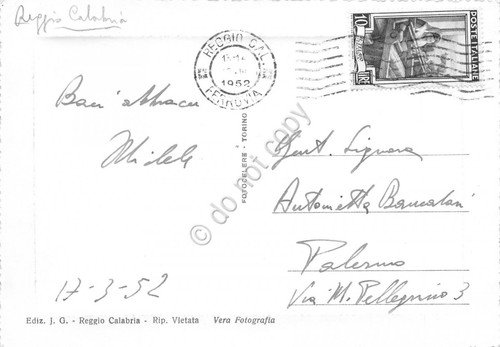 Reggio Calabria
REGGIO CAL.
1952
FERROVIA
POSTE ITALIANE
Baci
Michele
17-3-52
FOTOCELERE - TORINO
do not copy
Gent. Signora
Antonietta
Palermo
Via M. Pellegrino 3
Ediz. J. G. - Reggio Calabria - Rip. Vietata Vera Fotografia